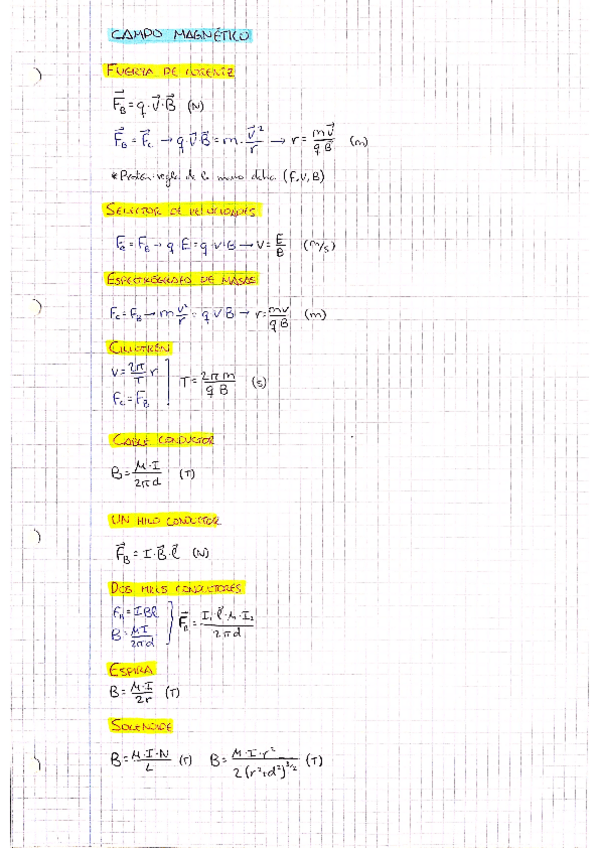 CAMPO MAGNÉTICO
FUERZA DE LORENTZ
F⃗_B = q·v⃗·B⃗ (N)
F⃗_B = F⃗_c → q·v⃗·B⃗ = m·v⃗²/r → r = mv⃗/qB⃗ (m)
* Protón: regla de la mano dcha. (F, V, B)
SELECTOR DE VELOCIDADES
F_e = F_B → q·E = q·v·B → v = E/B (m/s)
ESPECTRÓGRAFO DE MASAS
F_c = F_B → m v²/r = q v B → r = mv/qB (m)
CICLOTRÓN
v = 2π/T r
F_c = F_B } T = 2πm/qB (s)
CABLE CONDUCTOR
B = μ·I/2πd (T)
UN HILO CONDUCTOR
F⃗_B = I·B⃗·ℓ⃗ (N)
DOS HILOS CONDUCTORES
F_B = IBℓ
B = μI/2πd } F⃗_B = I₁·ℓ·μ·I₂/2πd
ESPIRA
B = μ·I/2r (T)
SOLENOIDE
B = μ·I·N/L (T) B = μ·I·r²/2(r²+d²)^3/2 (T)